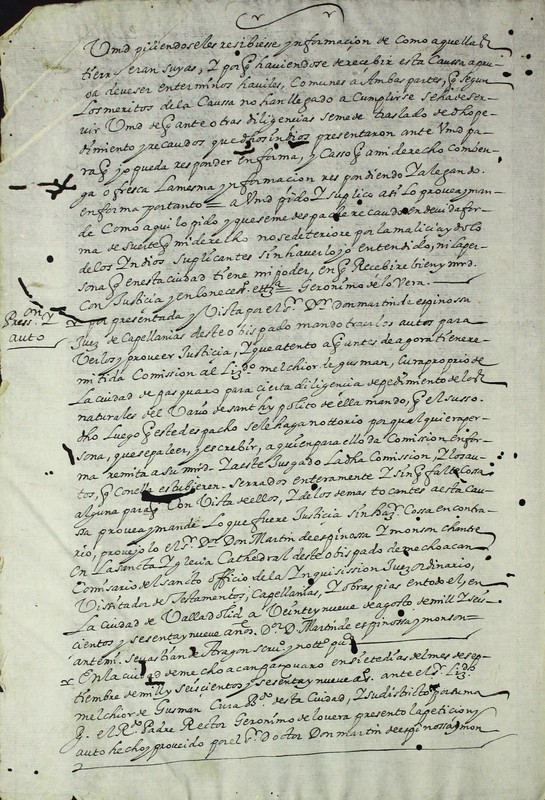 Vmd pidiendose les resibiesse ynformacion de Como aquella d
tierr eran suyas, Y por q haviendose de recebir esta Caussa apru-
va deve ser enterminos haviles, Comunes a Ambas partes, q segun
Los meritos dela Caussa no han llegado a Cumplirse se ha de ser-
uir Vmd de q ante otras diligencias seme de traslado de dho pe-
dimiento y recaudos que dhos indios presentaron ante Vmd pa-
ra q yo pueda responder en forma, y Casso q a mi derecho comben-
ga ofresca La mesma ynformacion respondiendo Y alegando.
en forma portanto = a Vmd pido Y suplico asi Lo provea y man-
de Como aqui lo pido y que seme despache recaudo en devida for-
ma de suerte q mi derecho no se deteriore por la malicia y dolo
de los Yndios suplicantes sin haverlo yo entendido, ni la per-
sona q en esta ciudad tiene mi poder, en q Recebire bien y mrd.
Con Justicia y en lo neces.o ettz.a Geronimo de lo Vera.
Press.on Y
auto
por presentada y Vista por el s.r D.or Don martin de espinossa
Juez de Capellanias deste obispado mando traer los autos para
Verlos y proveer Justicia, Y que atento a q antes de agora tiene re-
mitida Comission al Liz.do melchior de gusman, Cura proprio de
La ciudad de pasquaro para cierta diligencia de pedimento de los
naturales del Varrio de sant hypolito de ella mando, q el suso-
dho Luego q este despacho se le haga nottorio por qualquiera per-
sona, que sepa leer, y escrebir, a quien para ello da Comission en for-
ma remita a su mrd. Y a este Jusgado La dha Comission, Y los au-
tos, q Con ella estubieren Serrados enteramente Y sin q falte Cossa
alguna para q Con Vista de ellos, Y de los demas tocantes a esta cau-
ssa provea y mande Lo que fuere Justicia sin haz.r Cossa en contra-
rio, proveyo lo el s.r D.or Don Martin de espinossa Y monson chantre
en La Sancta Yglecia Cathedral deste obispado de mechoacan
Comissario del Sancto officio de la Ynquisission Juez ordinario,
Vissitador de Testamentos, Capellanias, Y obras pias en todo el, en
La ciudad de Valladolid a Veinte y nueve de agosto de mill Y seis-
cientos y sesenta y nueve años. D.or D. Martin de espinossa y monson-
ante mi. Sevastian de Aragon serv.o y nott.o pu.co
En la ciudad de mechoacan pasquaro en siete dias del mes de sep-
tiembre de mill y seiscientos y sesenta y nueve a.s ante el s.r Liz.do
melchior de Gusman Cura B.do desta Ciudad, Y su distrito por su ma
g. el R.do Padre Rector Geronimo de lovera presento la peticion y
auto hecho y proveido por el s.r Doctor Don martin de espinossa y mon-